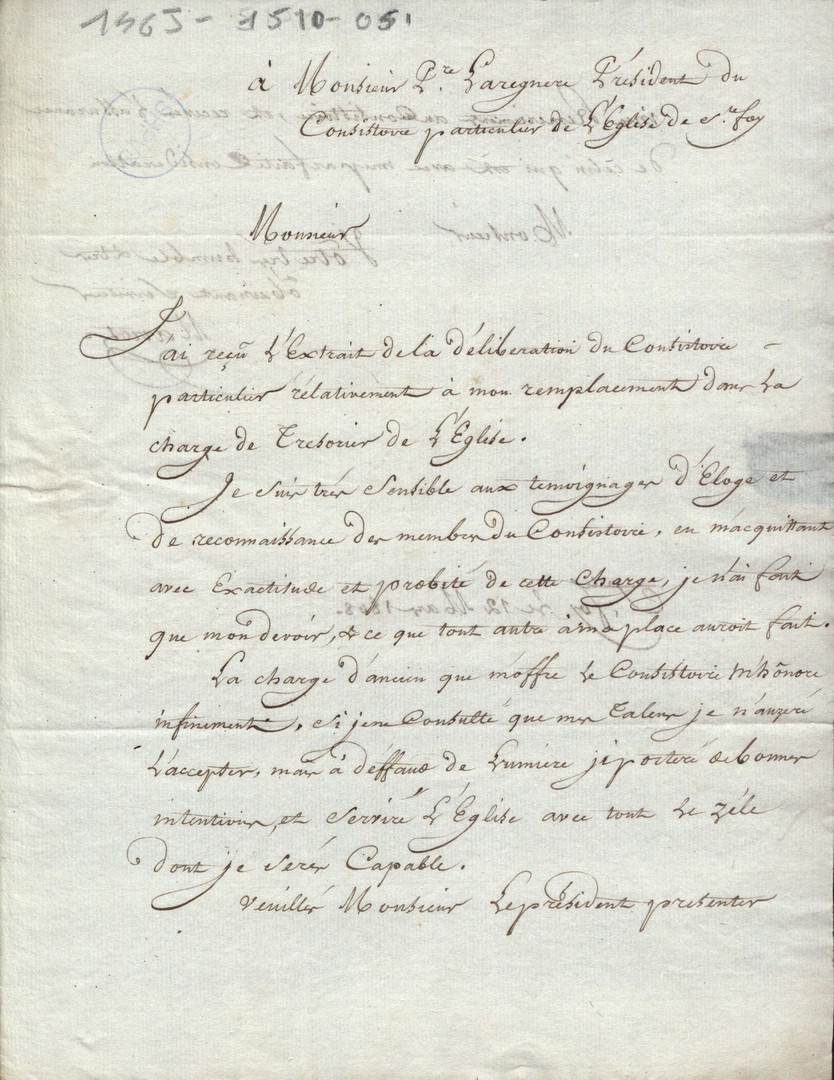 1965 - 1510 - 051
à Monsieur P.re Laregnere Président du
Consistoire particulier de L'Eglise de S.te foy
Monsieur
J'ai reçu L'Extrait de la déliberation du Consistoire
particulier rélativement à mon remplacement dans La
charge de Tresorier de L'Eglise.
Je suis trés Sensible aux temoignages D'Eloge et
de reconnaissance des membres du Consistoire, en m'acquittant
avec Exactitude et probité de cette Charge, je n'ai fait
que mon devoir, & ce que tout autre à ma place auroit fait.
La charge d'ancien que m'offre Le Consistoire m'hônore
infiniment, Si je ne Consulté que mes Talens je n'auzeré
L'accepter, mais à déffaud de Lumiere j'y porteré de bonnes
intentions, et Serviré L'Eglise avec tout Le Zéle
dont je Serés Capable.
Veuillés Monsieur Le président presenter